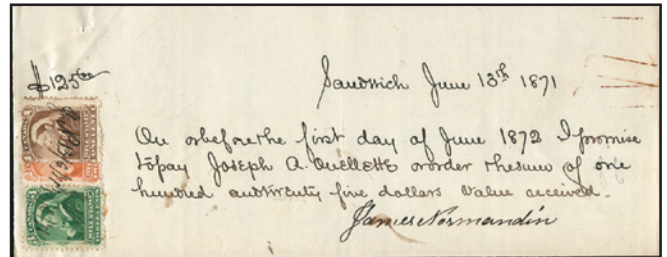 $125 00
Sandwich June 13th 1871
On or before the first day of June 1872 I promise
to pay Joseph A. Ouellette or order the sum of one
hundred and twenty five dollars value received.
James Normandin